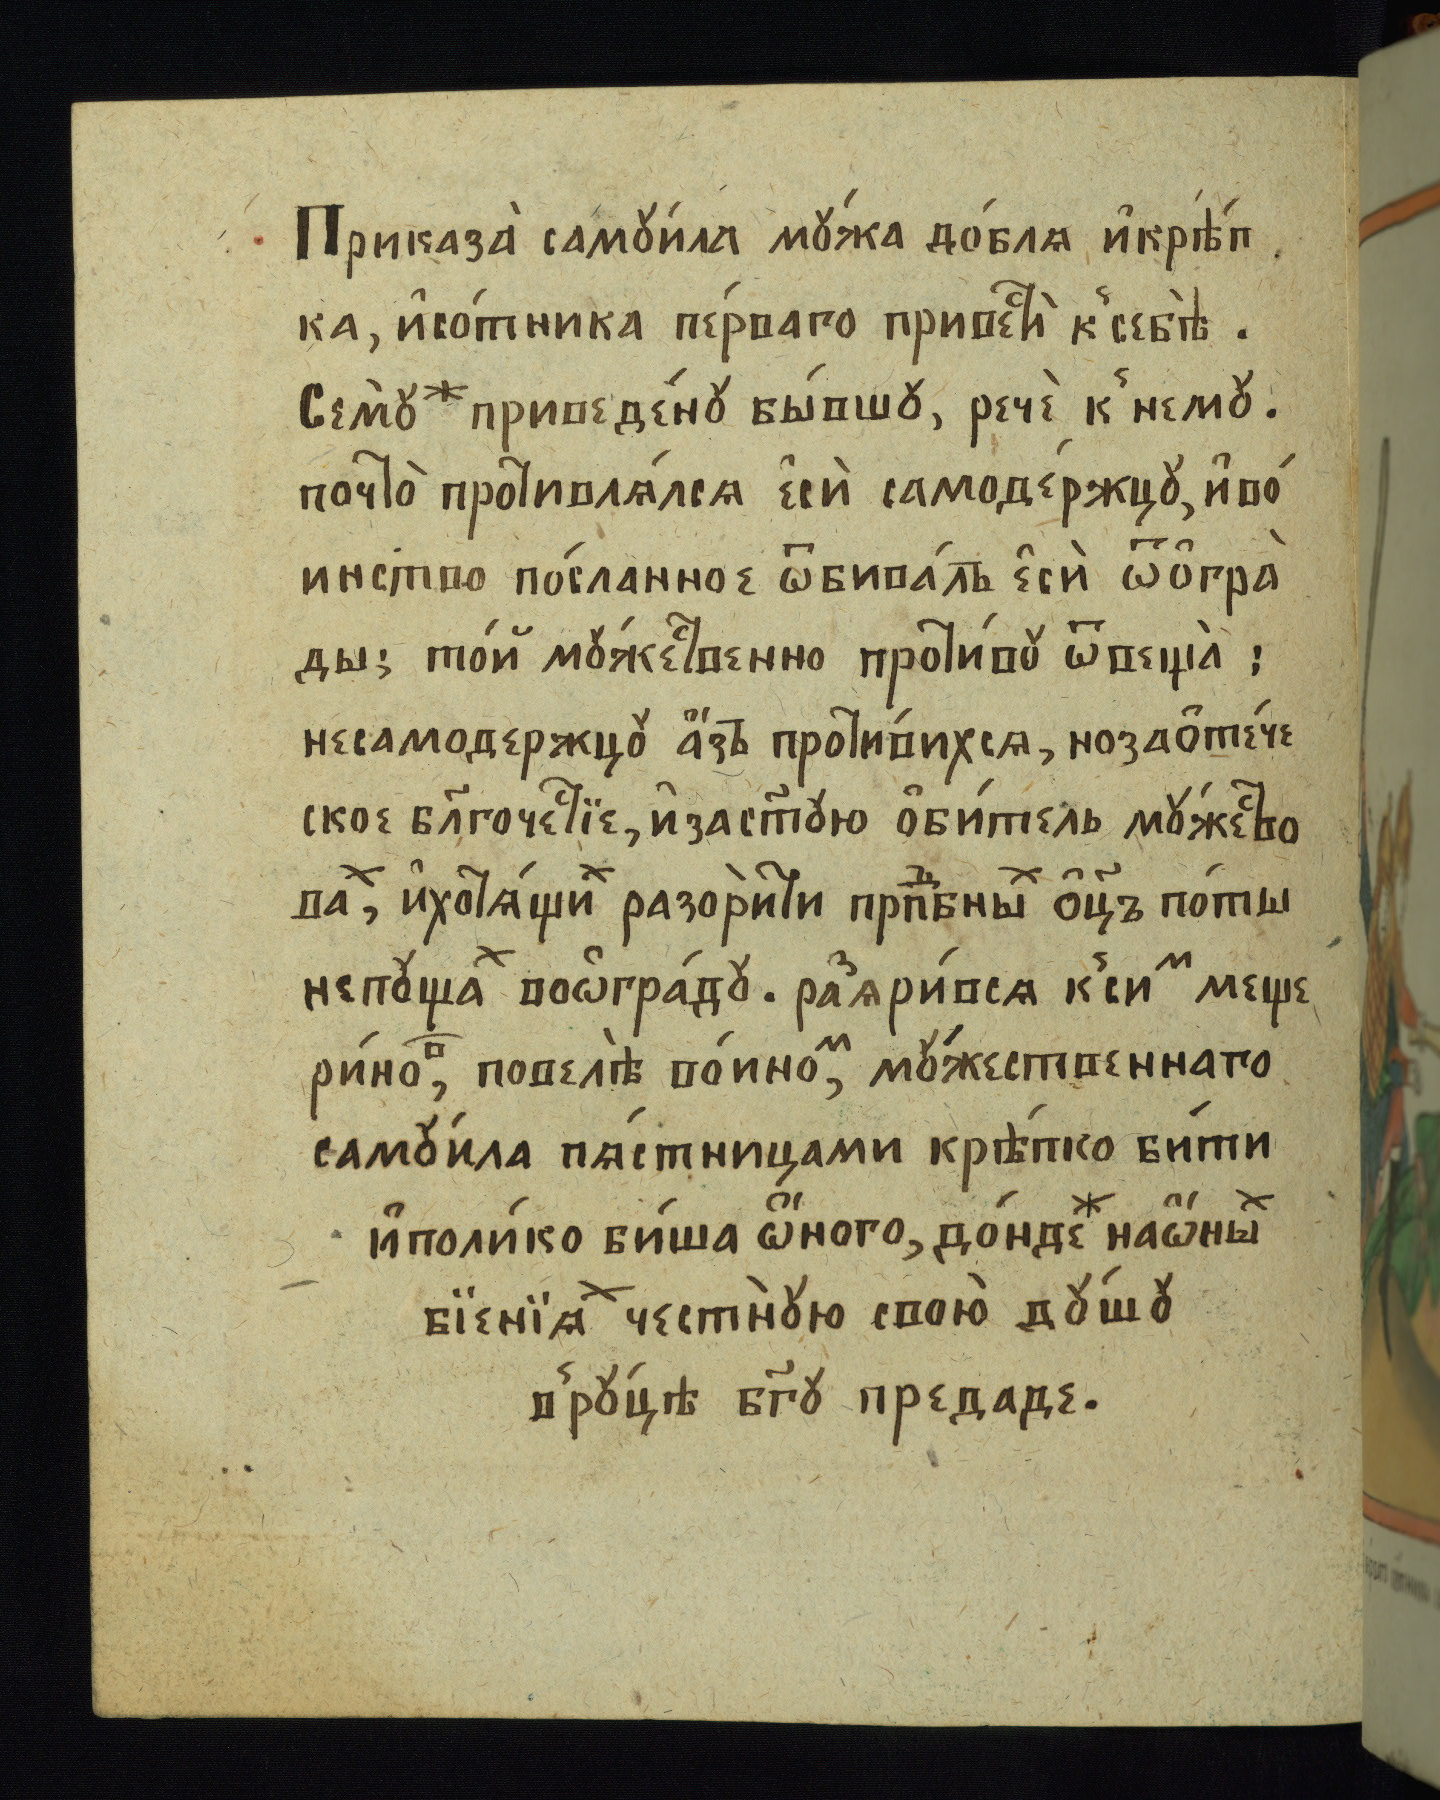 Приказа̀ самꙋи́ла мꙋ́жа до́блѧ и҆крѣ́п
ка, и҆со́тника пе́рваго привеⷭ҇тѝ к̾себѣ̀.
Семꙋ̀ⷤ приведе́нꙋ бы́вшꙋ, речѐ к̾немꙋ.
почто̀ противлѧ́лсѧ є҆сѝ самоде́ржцꙋ, и҆во́
инство по́сланное ѿбива́лъ є҆сѝ ѿо҆гра̀
ды; то́й мꙋ́жеⷭ҇твенно проти́вꙋ ѿвеща̀;
несамодержцꙋ а҆́зъ проти́вихсѧ, нозао҆те́че
ское бл҃гочеⷭ҇тїе, и҆заст҃ꙋю о҆би́тель мꙋ́жеⷭ҇тво
ваⷯ, и҆хотѧ́щиⷯ разори́ти прпⷣбныⷯ о҆ц҃ъ по́ты
непꙋщаⷯ воѡ҆гра́дꙋ. раⷥѧри́всѧ к̾сиⷨ меще
ри́новⷪ, повелѣ̀ во́иноⷨ, мꙋ́жественнаго
самꙋи́ла пѧ́стницами крѣ́пко би́ти
и҆поли́ко би́ша ѡ҆́ного, до́ндеⷤ наѡ҆́ныⷯ
бїенїѧⷯ честнꙋ̀ю свою̀ дꙋ́шꙋ
в̾рꙋ́цѣ бг҃ꙋ предаде.